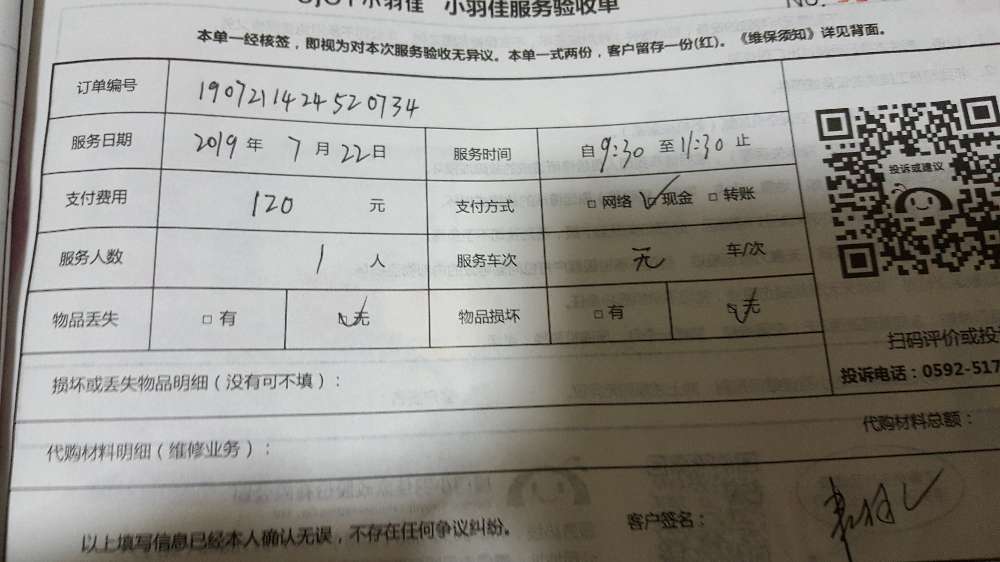 小羽佳 小羽佳服务验收单 NO.
本单一经核签，即视为对本次服务验收无异议。本单一式两份，客户留存一份(红)。《维保须知》详见背面。
订单编号 1907211424520734
服务日期 2019 年 7 月 22 日 服务时间 自 9:30 至 11:30 止
支付费用 120 元 支付方式 □ 网络 □ 现金 □ 转账
服务人数 1 人 服务车次 无 车/次
物品丢失 □ 有 □ 无 物品损坏 □ 有 □ 无
投诉或建议
扫码评价或投
投诉电话：0592-517
损坏或丢失物品明细（没有可不填）：
代购材料明细（维修业务）： 代购材料总额：
以上填写信息已经本人确认无误，不存在任何争议纠纷。 客户签名：